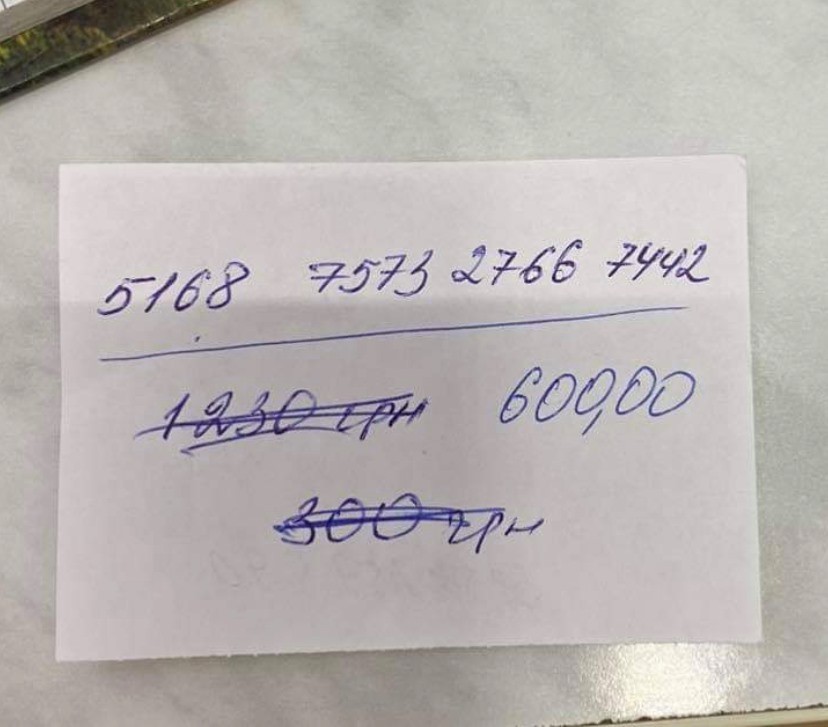 5168 7573 2766 7442
1230 грн 600,00
300 грн